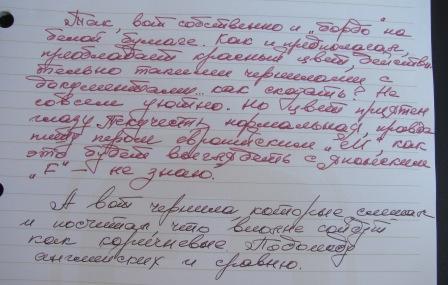 Так, вот собственно и "бордо" на
белой бумаге. Как и предполагал,
преобладает красный цвет, действи-
тельно такими чернилами с
документами.. как сказать? Не
совсем уютно. Но цвет приятен
глазу. Текучесть нормальная, правда
пишу пером европейским "М", как
это будет выглядеть с японским
"F" - не знаю.
А вот чернила которые смешал
и посчитал, что вполне сойдут
как коричневые. Подобно
английских и сравню.